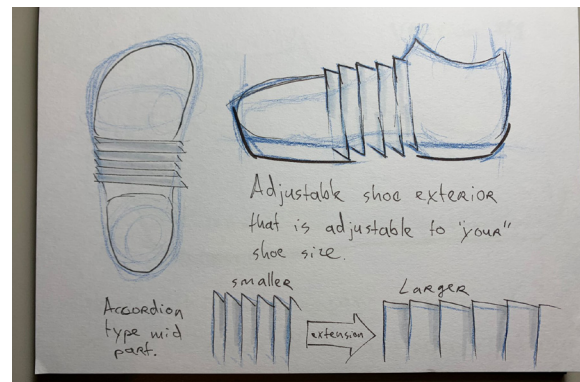 Adjustable shoe exterior
that is adjustable to "your"
shoe size.
Accordion
type mid
part.
smaller
extension
Larger